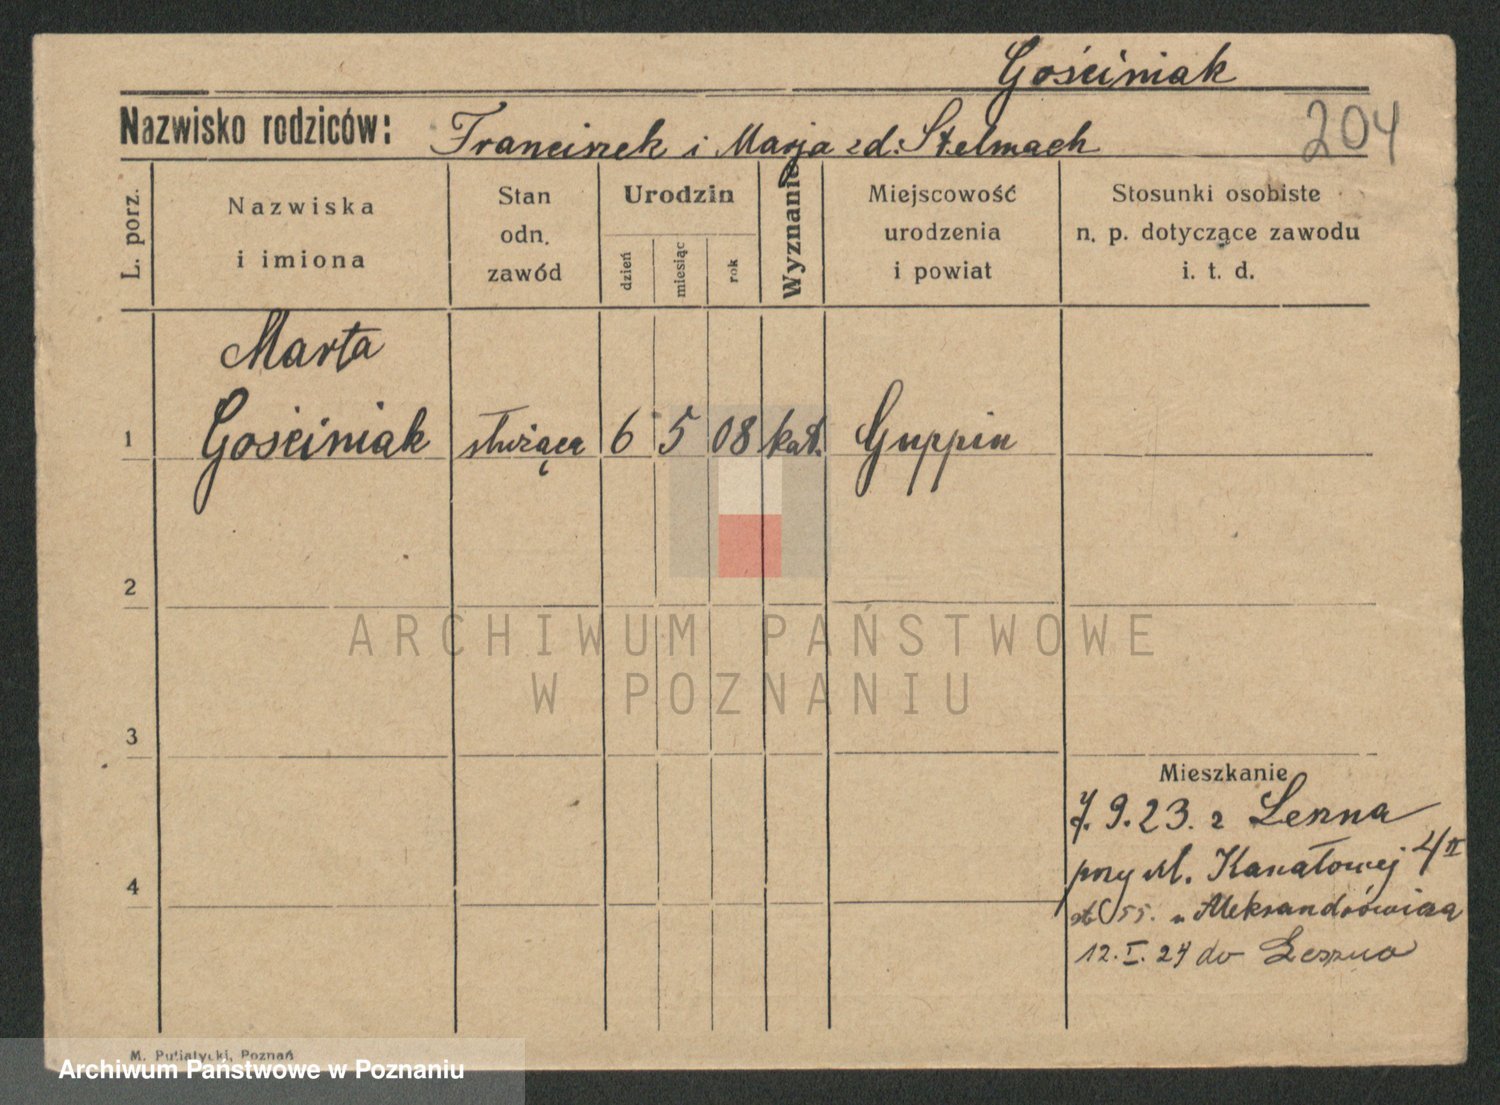 Gościniak
204
Nazwisko rodziców: Franciszek i Marja zd. Stelmach
L. porz.
Nazwiska
i imiona
Stan
odn.
zawód
Urodzin
dzień
miesiąc
rok
Wyznanie
Miejscowość
urodzenia
i powiat
Stosunki osobiste
n. p. dotyczące zawodu
i. t. d.
Marta
1 Gościniak służąca 6 5 08 kat. Guppin
2
ARCHIWUM PAŃSTWOWE
W POZNANIU
3
Mieszkanie
7. 9. 23. z Leszna
przy ul. Kanałowej 4 II
55. u Aleksandrowicza
4
12. I. 24 do Leszno
M. Putiatycki, Poznań
Archiwum Państwowe w Poznaniu